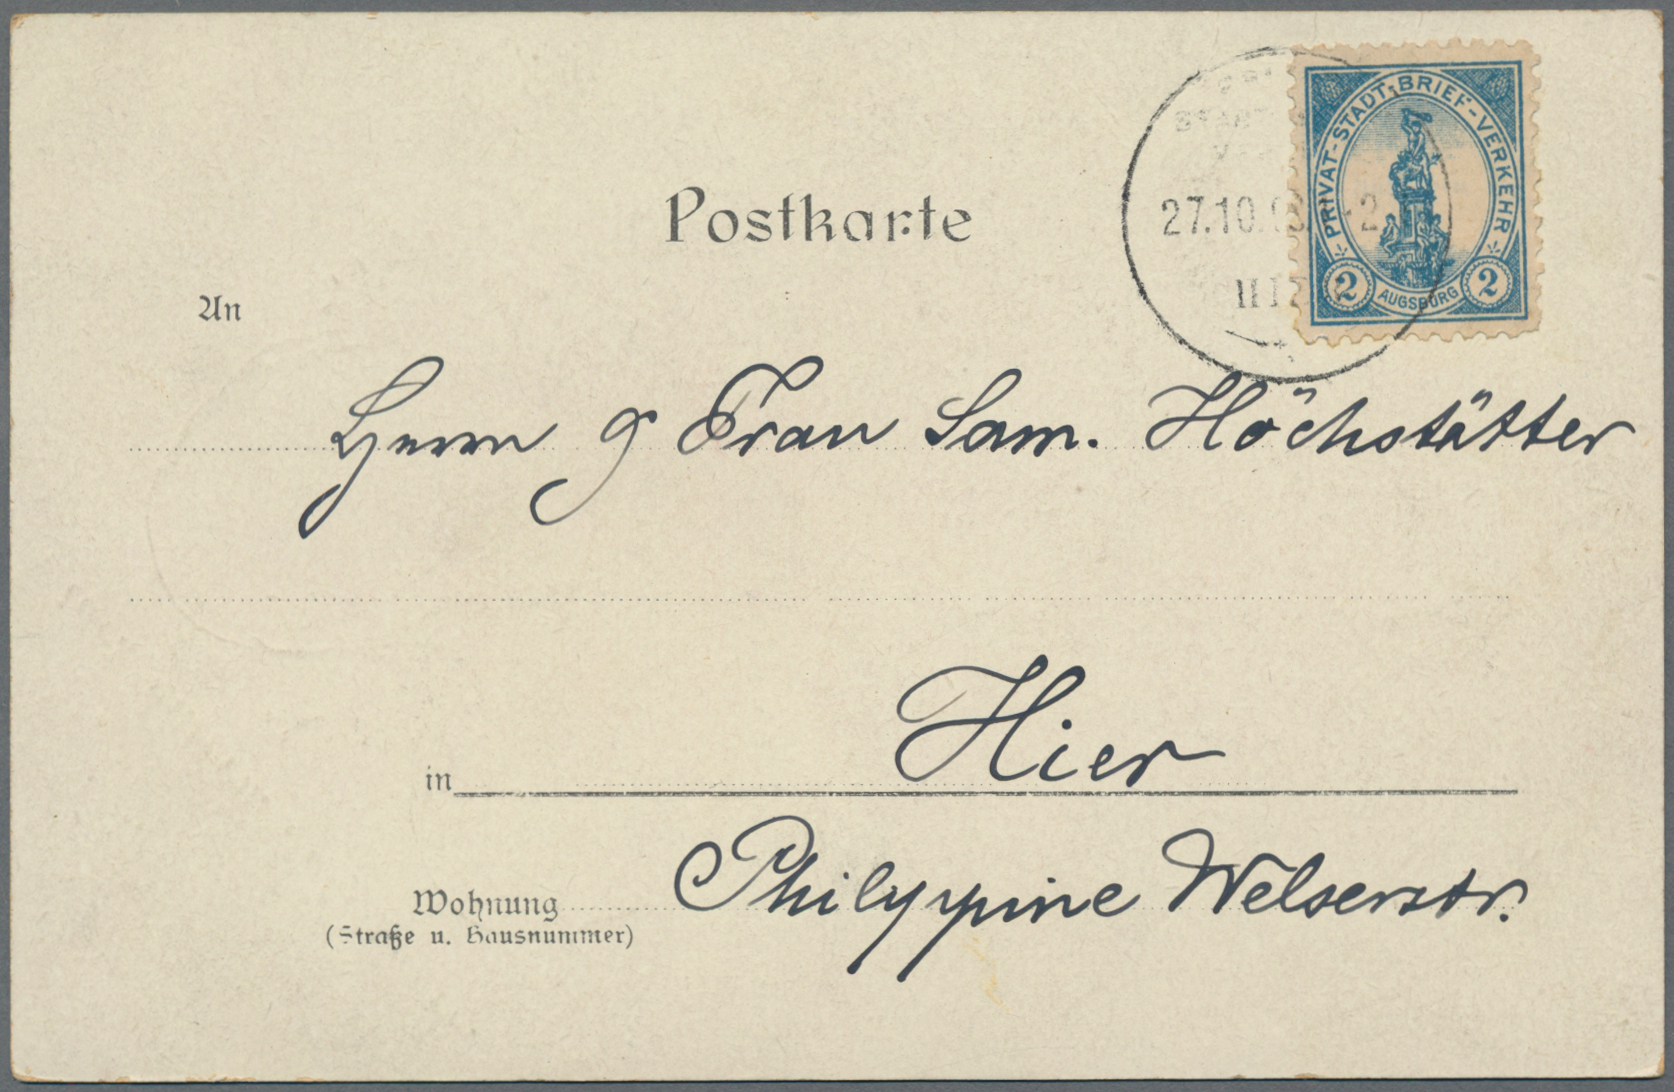 PRIVAT-STADT-BRIEF-VERKEHR
2 AUGSBURG 2
27.10.
Postkarte
An
Herrn & Frau Sam. Höchstätter
in Hier
Wohnung Philyppine Welserstr.
(Straße u. Hausnummer)